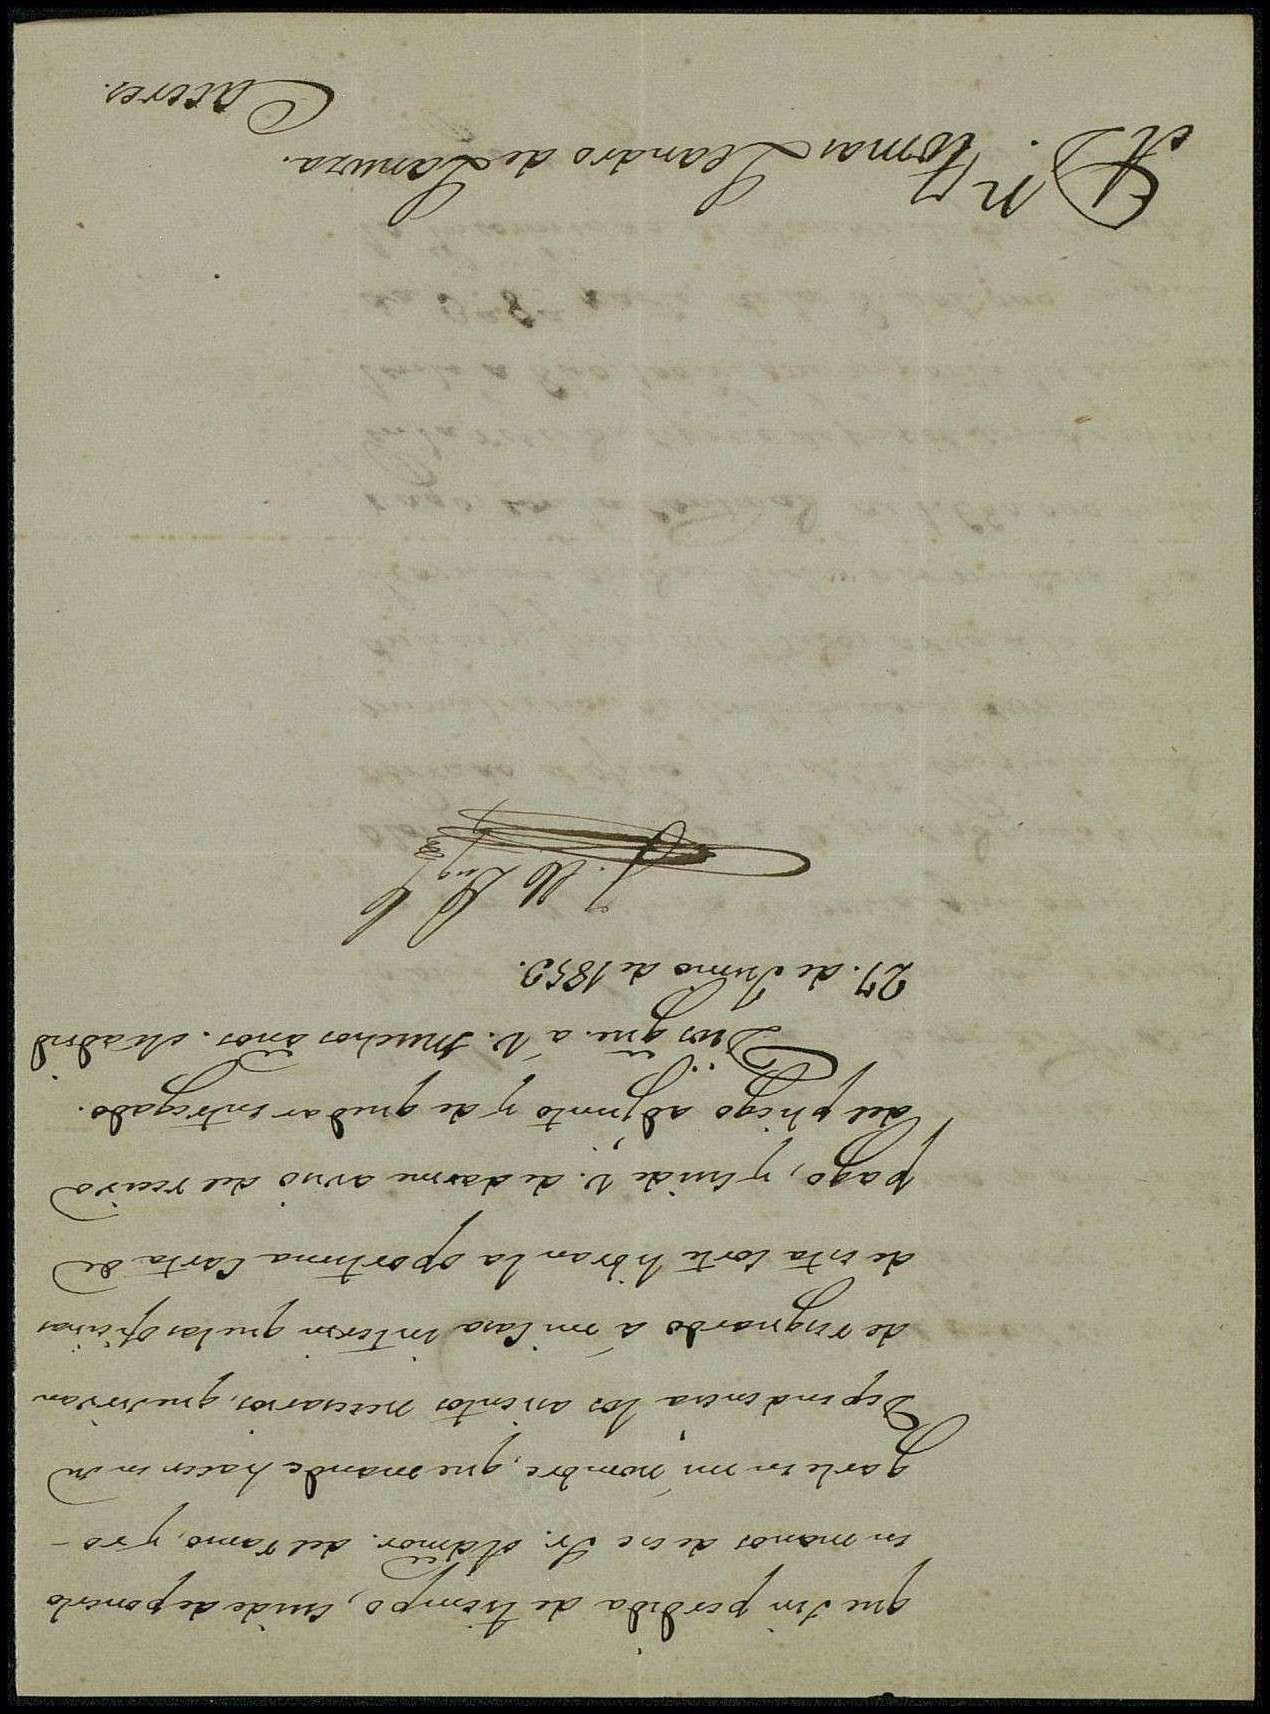 que sin perdida de tiempo, cuide de ponerlo
en manos de ese Sr. Admor. del ramo, y ro-
garle en mi nombre, que mande hacer en su
Dependencia los asientos necesarios, que sirvan
de resguardo á mi Casa interin que las oficinas
de esta Corte libran la oportuna Carta de
pago, y cuide V. de darme aviso del recivo
del pliego adjunto y de quedar entregado.
Dios gue. á V. muchos años. Madrid
27. de Junio de 1853.
Sr. D. Tomas Leandro de Lanuza.
Caceres.